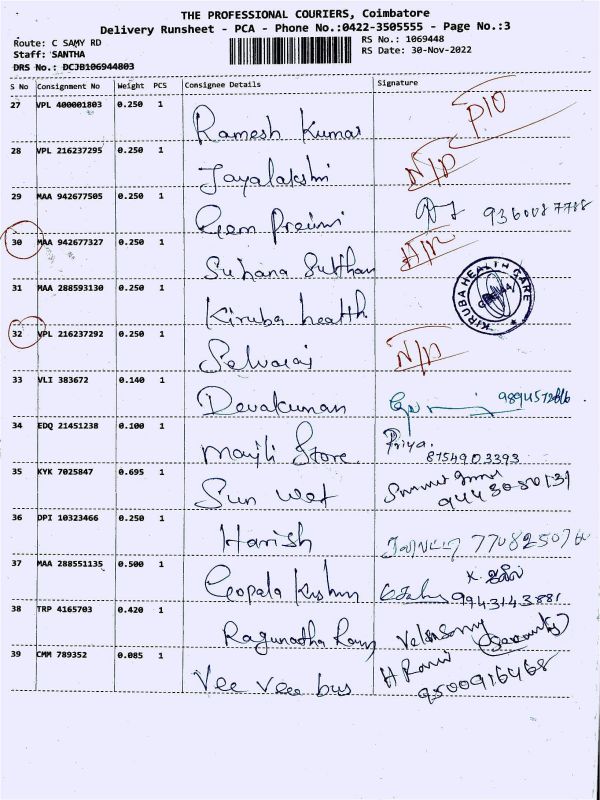 THE PROFESSIONAL COURIERS, Coimbatore
Delivery Runsheet - PCA - Phone No.:0422-3505555 - Page No.:3
Route: C SAMY RD RS No.: 1069448
Staff: SANTHA RS Date: 30-Nov-2022
DRS No.: DCJB106944803
S No Consignment No Weight PCS Consignee Details Signature
27 VPL 400001803 0.250 1 Ramesh Kumar P10
28 VPL 216237295 0.250 1 Jayalakshi N/D
29 MAA 942677505 0.250 1 Gem 9360087788
30 MAA 942677327 0.250 1 Suhana Sulthan
31 MAA 288593130 0.250 1 Kiruba health KIRUBA HEALTH CARE
32 VPL 216237292 0.250 1 Selvaraj N/D
33 VLI 383672 0.140 1 Devakumar
34 EDQ 21451238 0.100 1 Store Priya.
8754903393
35 KYK 7025847 0.695 1 Sun wet
9443080131
36 DPI 10323466 0.250 1 Harish
37 MAA 288551135 0.500 1 Gopala
9943143881
38 TRP 4165703 0.420 1 Ragunatha Velusamy (Security)
39 CMM 789352 0.085 1 Vee Vee bus H Ravi
9500916468